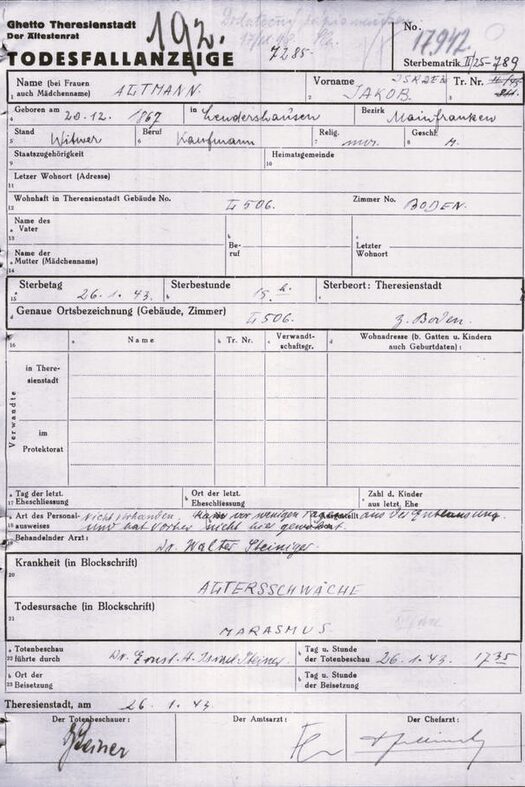 Ghetto Theresienstadt
Der Ältestenrat
192.
7285.
TODESFALLANZEIGE
No.
17942
Sterbematrik II/25-789
Name (bei Frauen
auch Mädchenname)
ALTMANN.
1
Vorname
JAKOB.
2
Tr. Nr.
3
Geboren am
4
20. 12. 1867
in
Lendershausen
Bezirk
Mainfranken
Stand
5
Witwer
Beruf
6
Kaufmann
Relig.
7
mos.
Geschl.
8
M.
Staatszugehörigkeit
9
Heimatsgemeinde
10
Letzer Wohnort (Adresse)
11
Wohnhaft in Theresienstadt Gebäude No.
12
L 506.
Zimmer No.
BODEN.
Name des
Vater
13
Name der
Mutter (Mädchenname)
14
Be-
ruf
Letzter
Wohnort
Sterbetag
15
26. 1. 43.
Sterbestunde
15 h.
Sterbeort: Theresienstadt
Genaue Ortsbezeichnung (Gebäude, Zimmer)
L 506.
z. Boden.
16
Name
Tr. Nr.
Verwandt-
schaftsgr.
Wohnadresse (b. Gatten u. Kindern
auch Geburtdaten):
Verwandte
in There-
sienstadt
im
Protektorat
Tag der letzt.
17 Eheschliessung
Ort der letzt.
Eheschliessung
Zahl d. Kinder
aus letzt. Ehe
Art des Personal-
18 ausweises
nicht vorhanden. Kam vor wenigen Tagen aus der
und hat vorher nicht hier gewohnt.
Behandelnder Arzt:
19
Dr. Walter Steiniger.
Krankheit (in Blockschrift)
20
ALTERSSCHWÄCHE
Todesursache (in Blockschrift)
21
MARASMUS
Totenbeschau
22 führte durch
Dr. Ernst A. Israel Steiner.
Tag u. Stunde
der Totenbeschau
26. 1. 43. 17 35
Ort der
23 Beisetzung
Tag u. Stunde
der Beisetzung
Theresienstadt, am 26. 1. 43
Der Totenbeschauer:
Der Amtsarzt:
Der Chefarzt:
Steiner